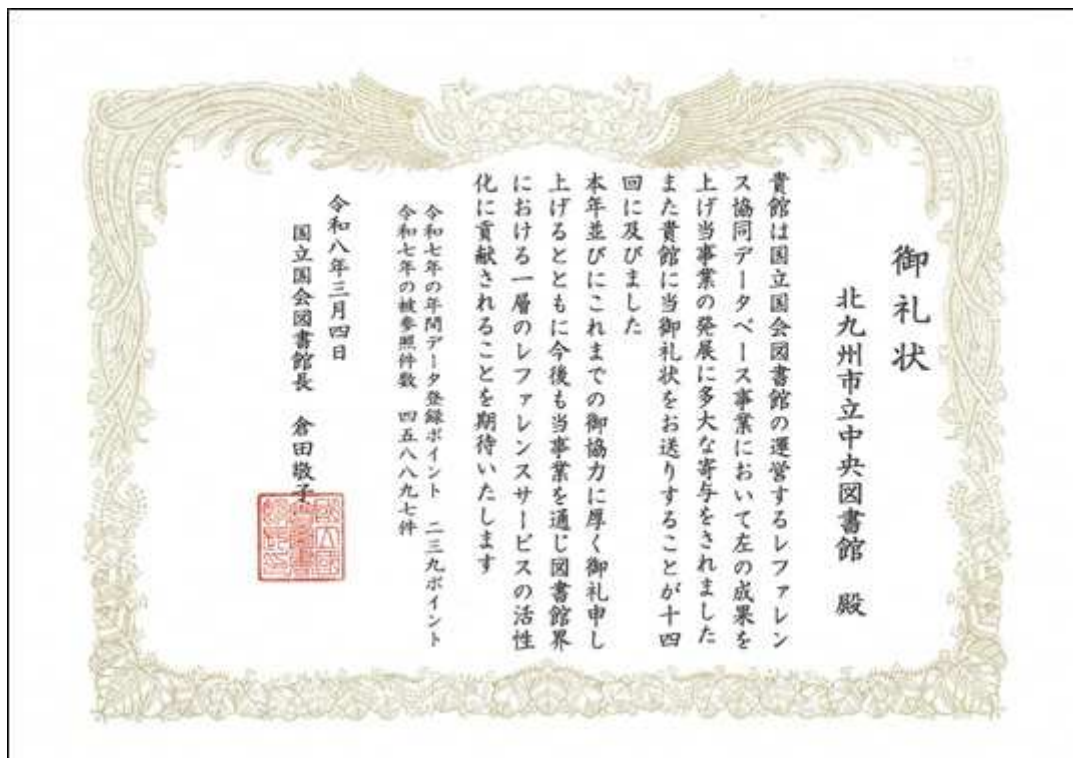 御礼状
北九州市立中央図書館 殿
貴館は国立国会図書館の運営するレファレン
ス協同データベース事業において左の成果を
上げ当事業の発展に多大な寄与をされました
また貴館に当御礼状をお送りすることが十四
回に及びました
本年並びにこれまでの御協力に厚く御礼申し
上げるとともに今後も当事業を通じ図書館界
における一層のレファレンスサービスの活性
化に貢献されることを期待いたします
令和七年の年間データ登録ポイント 二三九ポイント
令和七年の被参照件数 四五八八九七件
令和八年三月四日
国立国会図書館長 倉田敬子